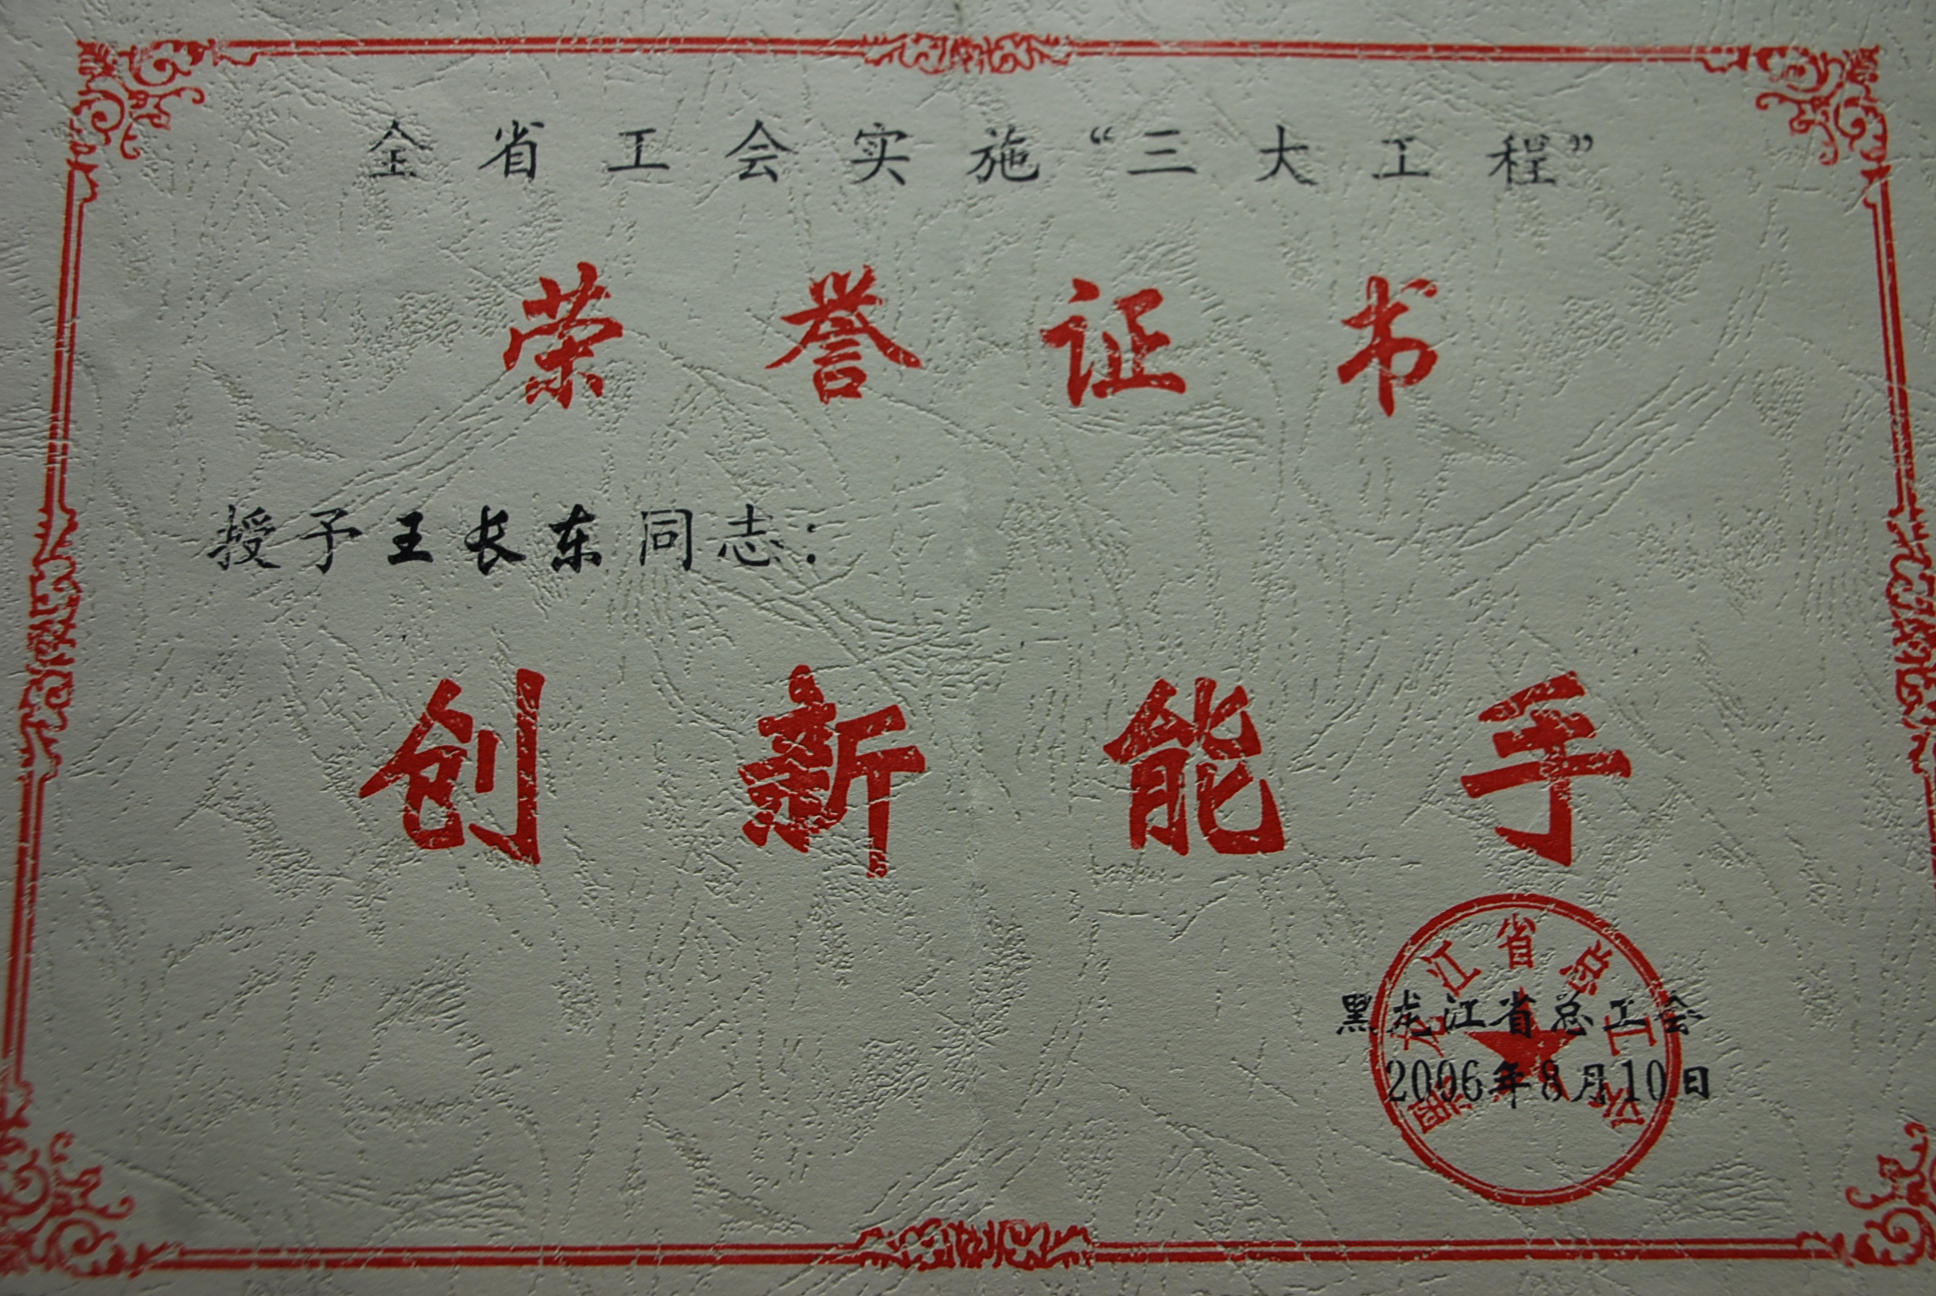 全省工会实施“三大工程”
荣誉证书
授予王长东同志：
创新能手
黑龙江省总工会
2006年8月10日
黑龙江省总工会